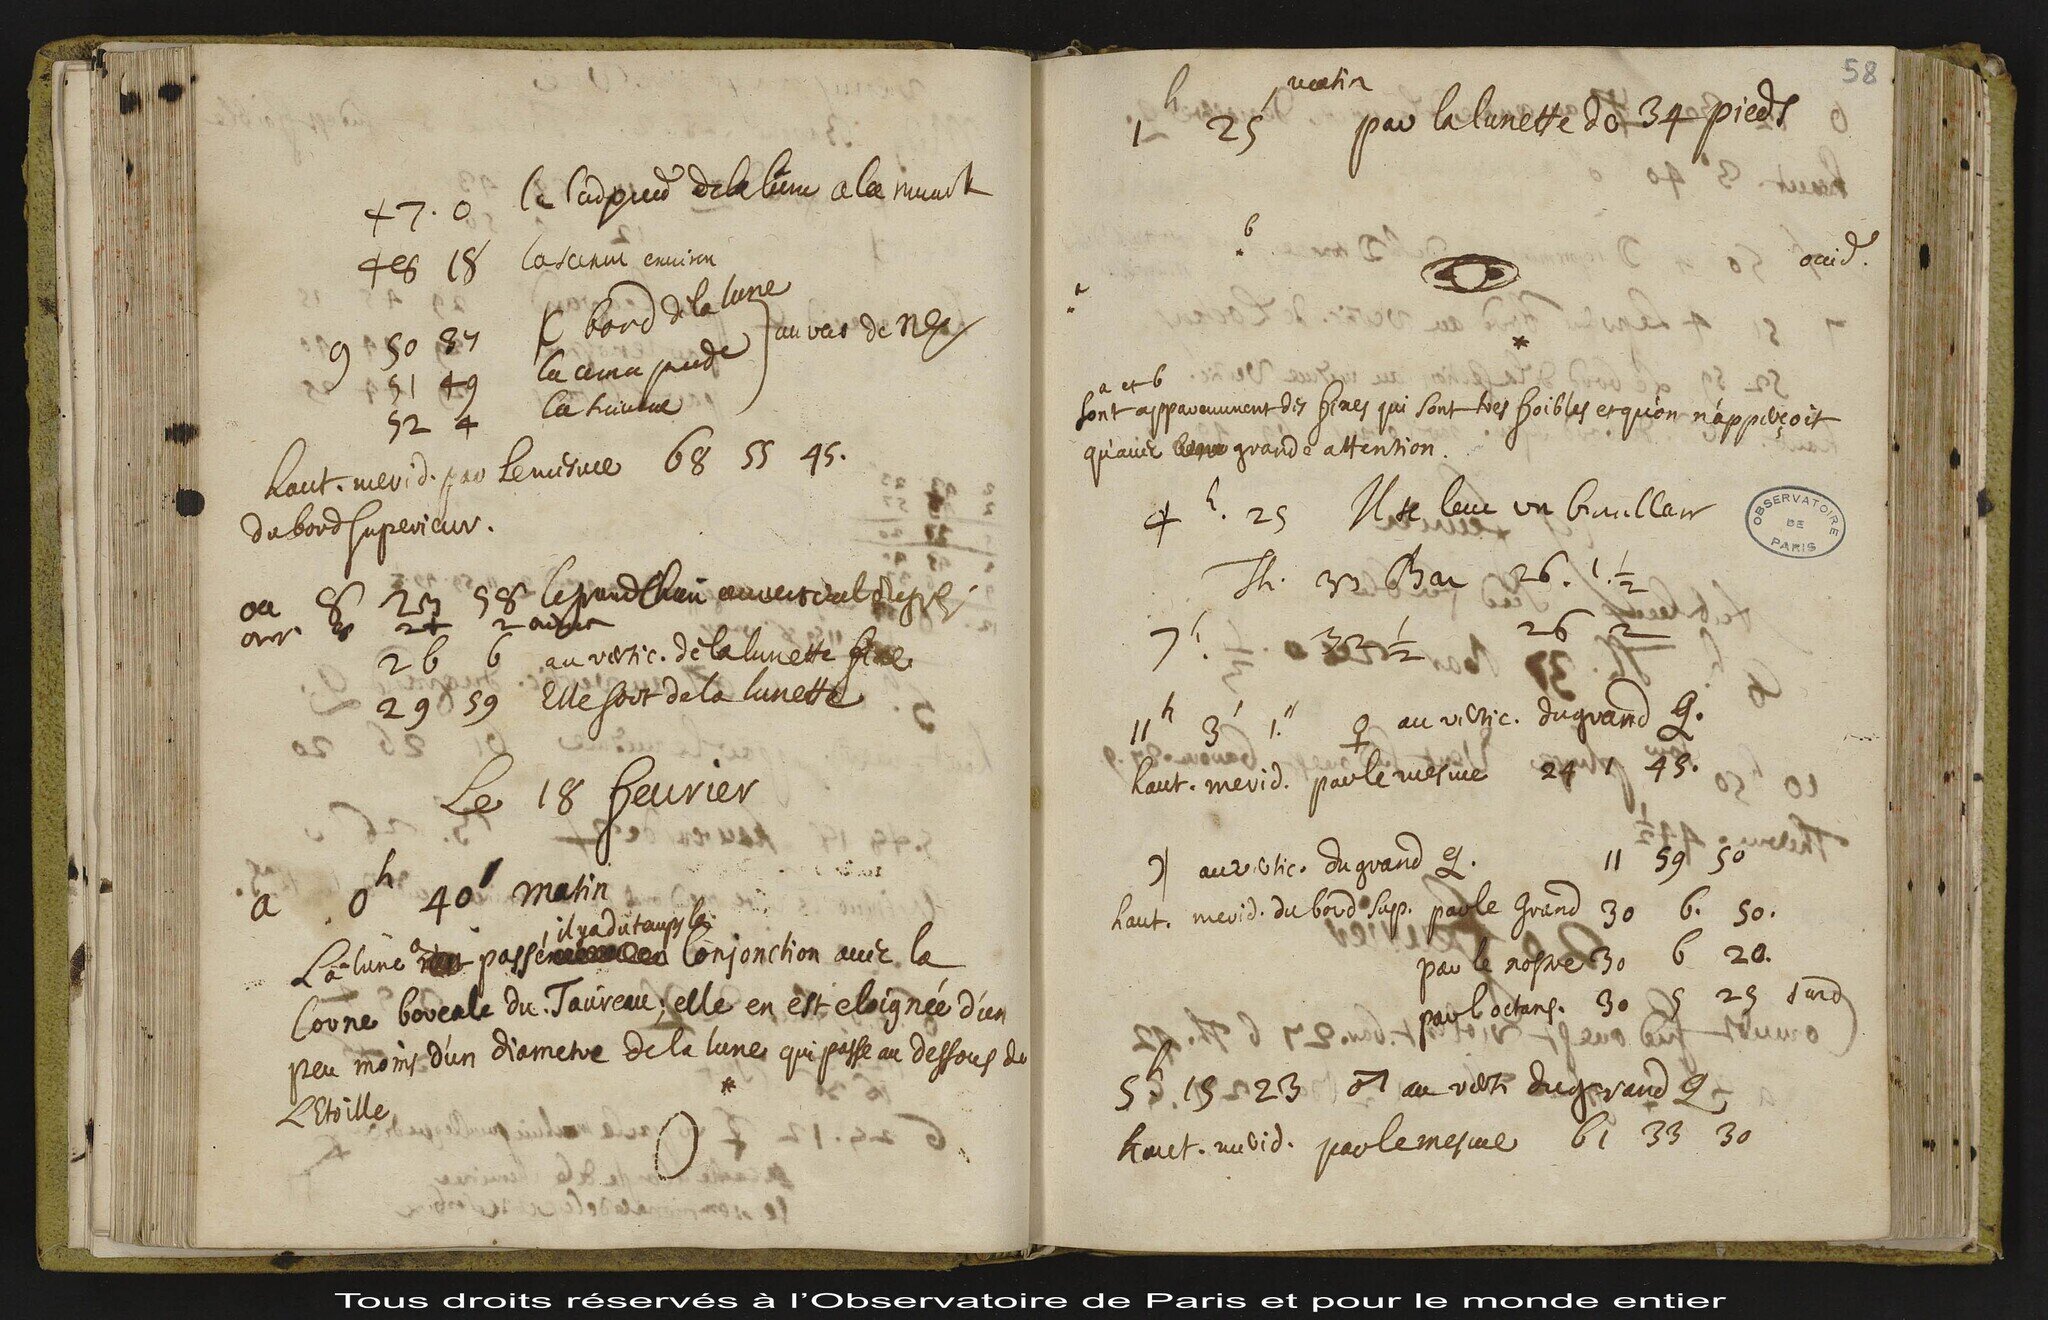 47. 0 le
48 18 la environ
9 50 37 bord de la lune
51 49 la
52 4 la
au vert. de
haut. merid. par le mesme 68 55 45.
du bord superieur.
8 23 58 le grand Chien
24 2
26 6 au vertic. de la lunette fixe
29 59 Elle sort de la lunette
Le 18 fevrier
a 0h 40' matin
il y a du temps la
La lune a passé Conjonction avec la
Corne boreale du Taureau; elle en est eloignée d'un
peu moins d'un diametre de la lune qui passe au dessous de
L'Etoille
*
58
1h 25' matin par la lunette de 34 pieds
b
*
occid.
a
*
*
a et b
sont apparemment des fixes qui sont tres foibles et qu'on n'apperçoit
qu'avec grande attention.
4h. 25 Il se leve un brouillar
OBSERVATOIRE
DE
PARIS
Th. 33 Bar 26. 1. 1/2
7h. 32 1/2 26 2
11h 3' 1." ♀ au vertic. du grand Q.
haut. merid. par le mesme 24 1 45.
☽ au vertic. du grand Q. 11 59 50
haut. merid. du bord sup. par le Grand 30 6. 50.
par le nostre 30 6 20.
par l'octans. 30 5 25
5h. 15 23 ♂ au vertic du grand Q
haut. merid. par le mesme 61 33 30
Tous droits réservés à l'Observatoire de Paris et pour le monde entier